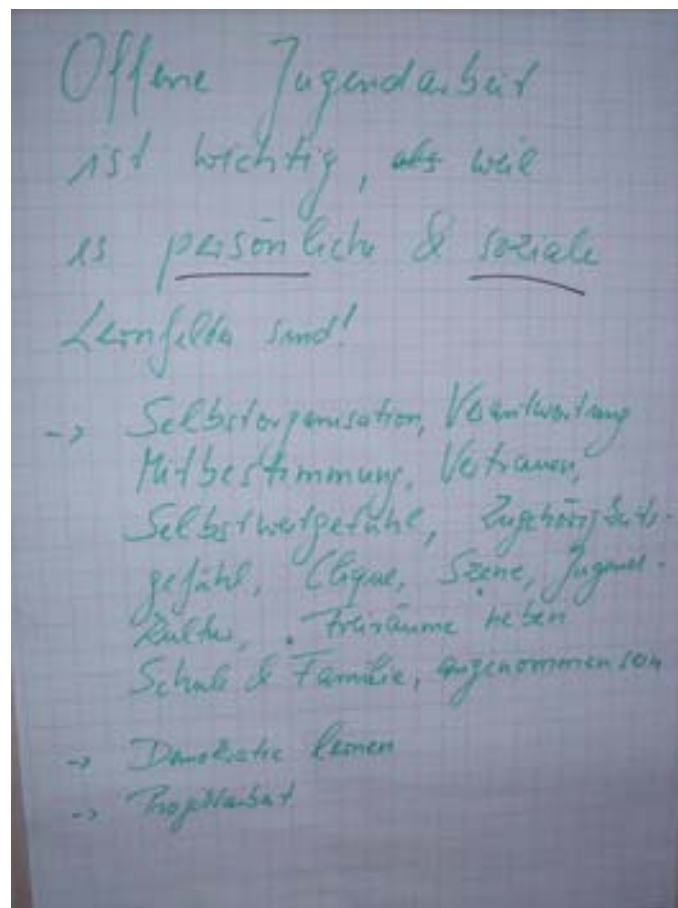 Offene Jugendarbeit
ist wichtig, als weil
es persönliche & soziale
Lernfelder sind!
-> Selbstorganisation, Verantwortung
Mitbestimmung, Vertrauen,
Selbstwertgefühl, Zugehörigkeits-
gefühl, Clique, Szene, Jugend-
kultur, Freiräume neben
Schule & Familie, angenommen sein
-> Demokratie lernen
-> Projektarbeit